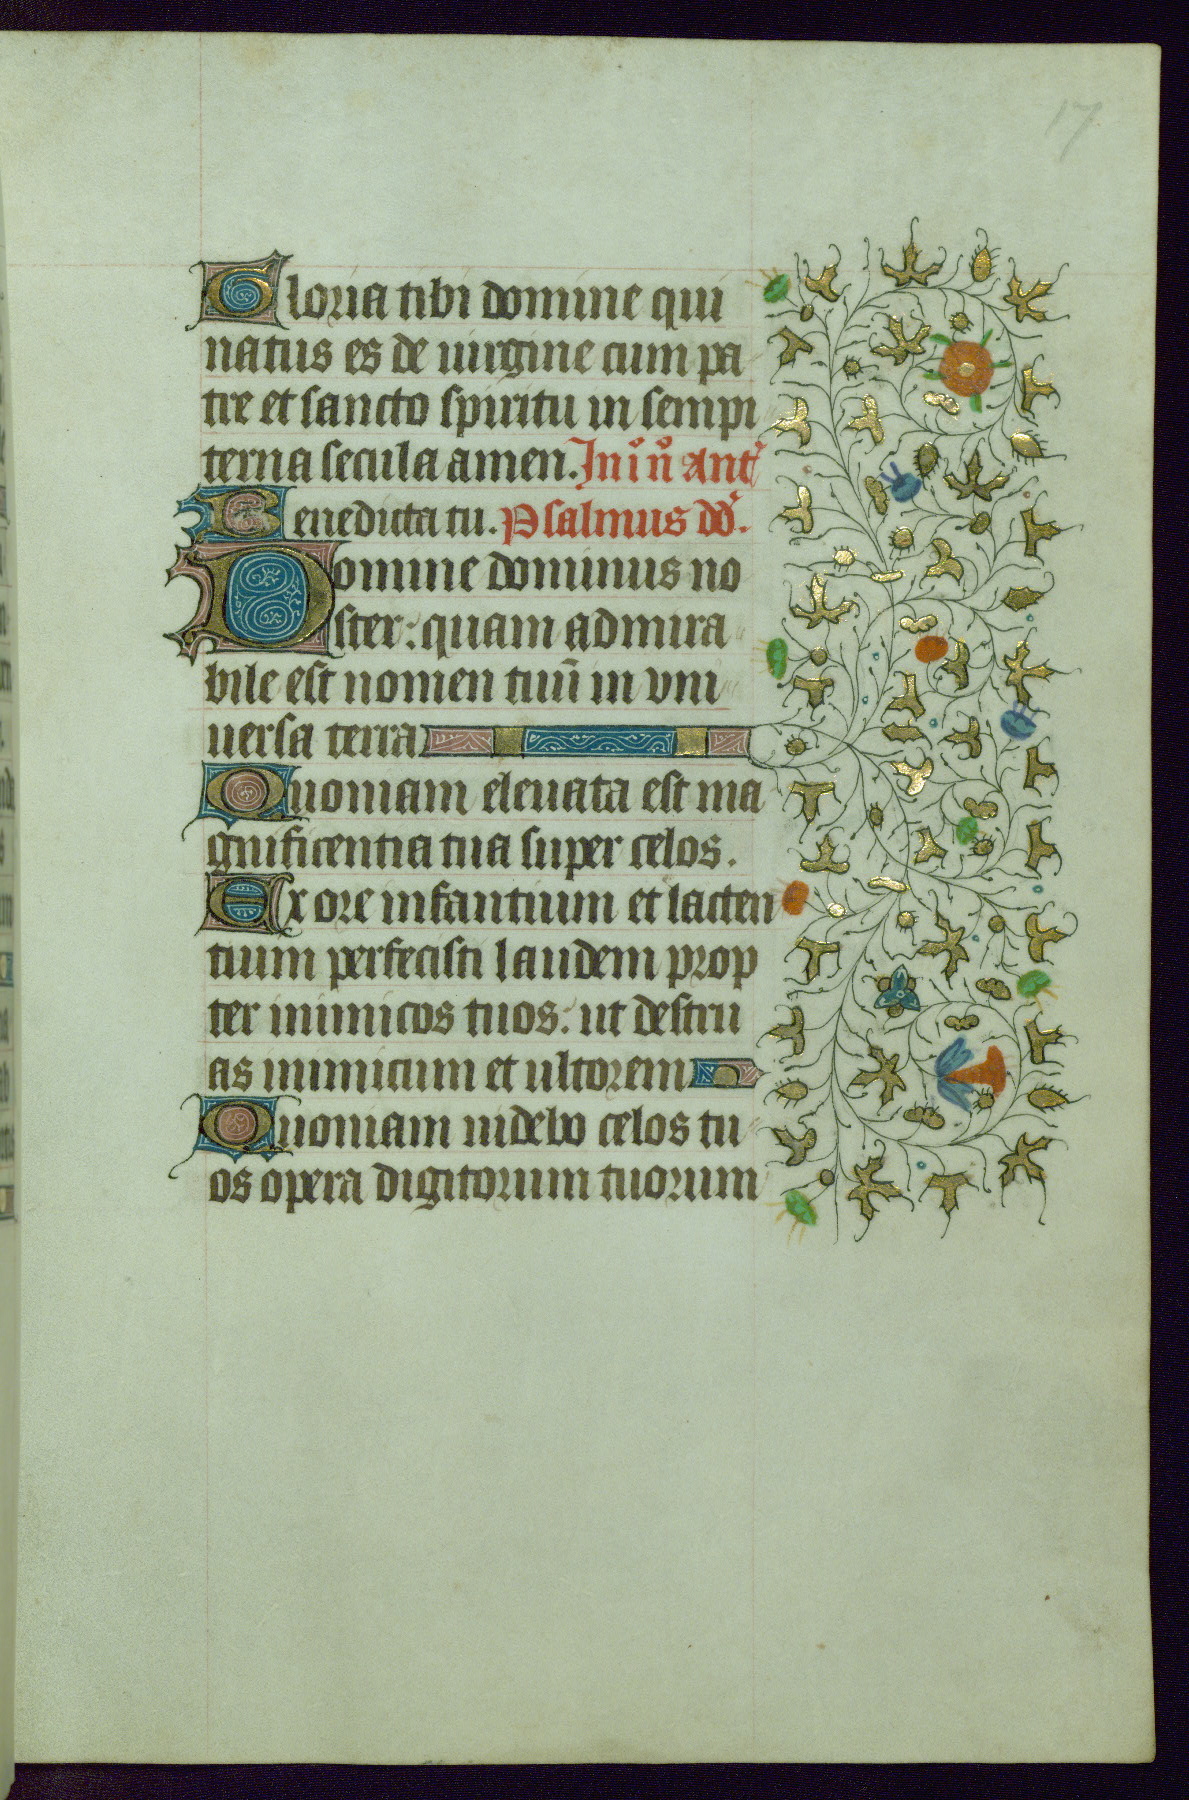 17
Gloria tibi domine qui
natus es de uirgine cum pa
tre et sancto spiritu in sempi
terna secula amen. In i° n° ant'
Benedicta tu. Psalmus dd'.
Domine dominus no
ster: quam admira
bile est nomen tuū in vni
uersa terra
Quoniam eleuata est ma
gnificentia tua super celos.
Ex ore infantium et lacten
tium perfecisti laudem prop
ter inimicos tuos: ut destru
as inimicum et ultorem
Quoniam uidebo celos tu
os opera digitorum tuorum